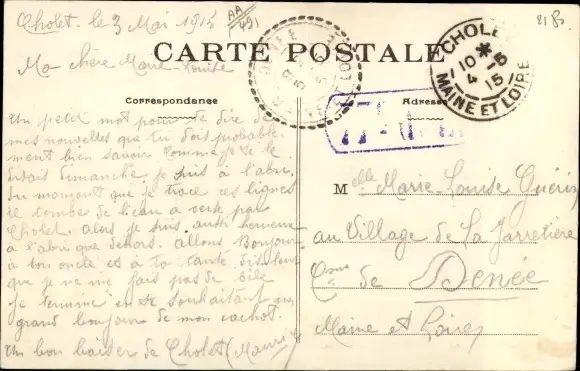 Cholet. le 3 Mai 1915
AA
491
21 Bo.
CARTE POSTALE
Ma chère Marie-Louise
Correspondance
Adresse
CHOLET
10 *
4 - 5
15
MAINE ET LOIRE
Un petit mot pour te dire de
mes nouvelles que tu dois probable
ment bien savoir comme je te le
disais Dimanche je suis à l'abri.
Du moment que je trace ces lignes
il tombe de l'eau a verse par
Cholet. alors je suis aussi heureux
à l'abri que dehors. allons Bonjour
a ton oncle et à ta tante dis leur
que je ne me fais pas de bile
Je termine en te souhaitant un
grand bonjour de mon cachot.
Un bon baiser de Cholet (Maurice)
Melle Marie-Louise Guérin
au Village de La Jarretière
Cne de Denée
Maine et Loire